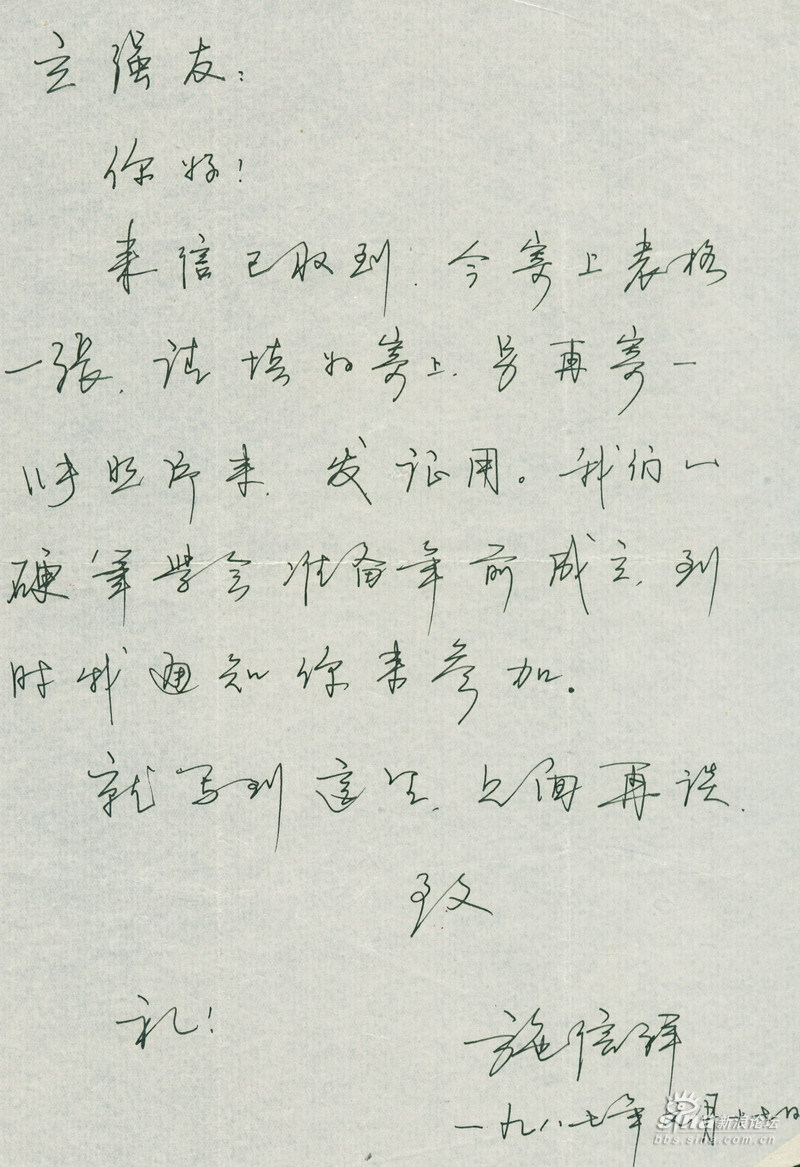 立强友：
你好！
来信已收到．今寄上表格
一张．请填好寄上．另再寄一
2寸照片来．发证用。我们
硬笔学会准备年前成立．到
时我通知你来参加。
就写到这里．见面再谈．
致
礼！
施信
一九八七年 月 日
新浪论坛
bbs.sina.com.cn